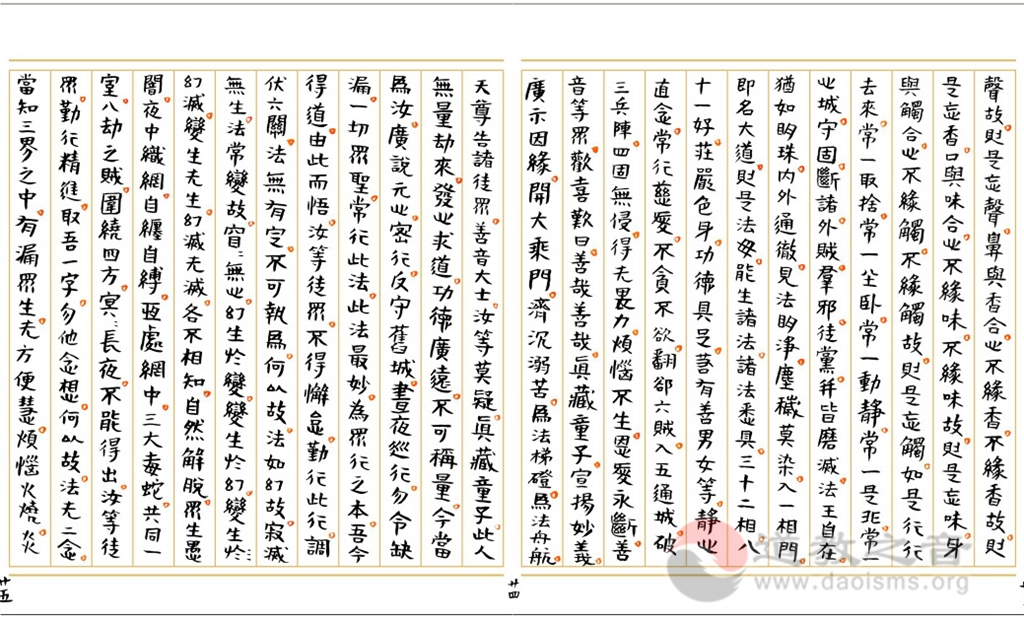 聲故則是忘聲鼻與香合心不緣香不緣香故則
是忘香口與味合心不緣味不緣味故則是忘味身
與觸合心不緣觸不緣觸故則是忘觸如是行行
去來常一取捨常一坐卧常一動靜常一是非常一
心城守固斷諸外賊羣邪徒黨并皆磨滅法王自在
猶如明珠内外通徹見法明淨塵穢莫染入一相門
即名大道則是法母能生諸法諸法悉具三十二相八
十一好莊嚴色身功德具足若有善男女等靜心
直念常行慈愛不貪不欲翻卻六賊入五通城破
三兵陣四固無侵得无畏力煩惱不生恩愛永斷善
音等眾歡喜歎曰善哉善哉眞藏童子宣揚妙義
廣示因緣開大乘門濟沉溺苦爲法梯磴爲法舟航
廿四
天尊告諸徒眾善音大士汝等莫疑眞藏童子此人
無量劫來發心求道功德廣遠不可稱量今當
爲汝廣說元心密行反守舊城晝夜巡行勿令缺
漏一切眾聖常行此法此法最妙為眾行之本吾今
得道由此而悟汝等徒眾不得懈怠勤行此行調
伏六關法無有定不可執爲何以故法如幻故寂滅
無生法常變故窅窅無心幻生於變變生於幻變生於
幻滅變生无生幻滅无滅各不相知自然解脫眾生愚
闇夜中織網自纏自縛亟處網中三大毒蛇共同一
室八劫之賊圍繞四方冥冥長夜不能得出汝等徒
眾勤行精進取吾一字勿他念想何以故法无二念
當知三界之中有漏眾生无方便慧煩惱火燒炎
廿五
道教之音
www.daoisms.org